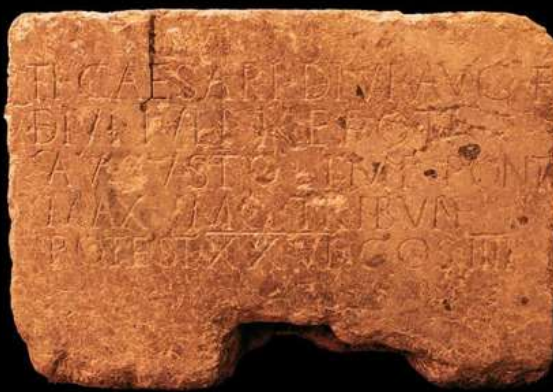 TI CAESARI DIVI AVG F
DIVI IVLI NEPOTI
AVGVSTO IMP PONT
MAXIMO TRIBVN
POTEST XX VII COS III